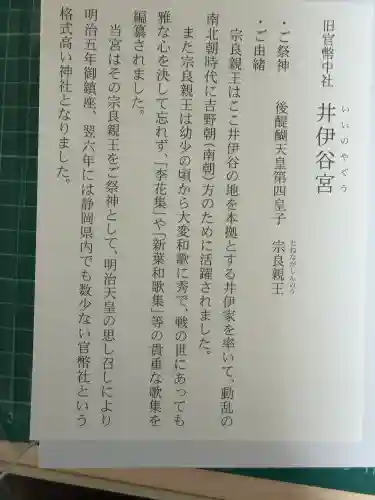 旧官幣中社 井伊谷宮
いいのやぐう
・ご祭神 後醍醐天皇第四皇子 宗良親王
むねながしんのう
・ご由緒
宗良親王はここ井伊谷の地を本拠とする井伊家を率いて。動乱の
南北朝時代に吉野朝(南朝)方のために活躍されました。
また宗良親王は幼少の頃から大変和歌に秀で、戦の世にあっても
雅な心を決して忘れず、「季花集」や「新葉和歌集」等の貴重な歌集を
編纂されました。
当宮はその宗良親王をご祭神として、明治天皇の思し召しにより
明治五年御鎮座、翌六年には静岡県内でも数少ない官幣社という
格式高い神社となりました。